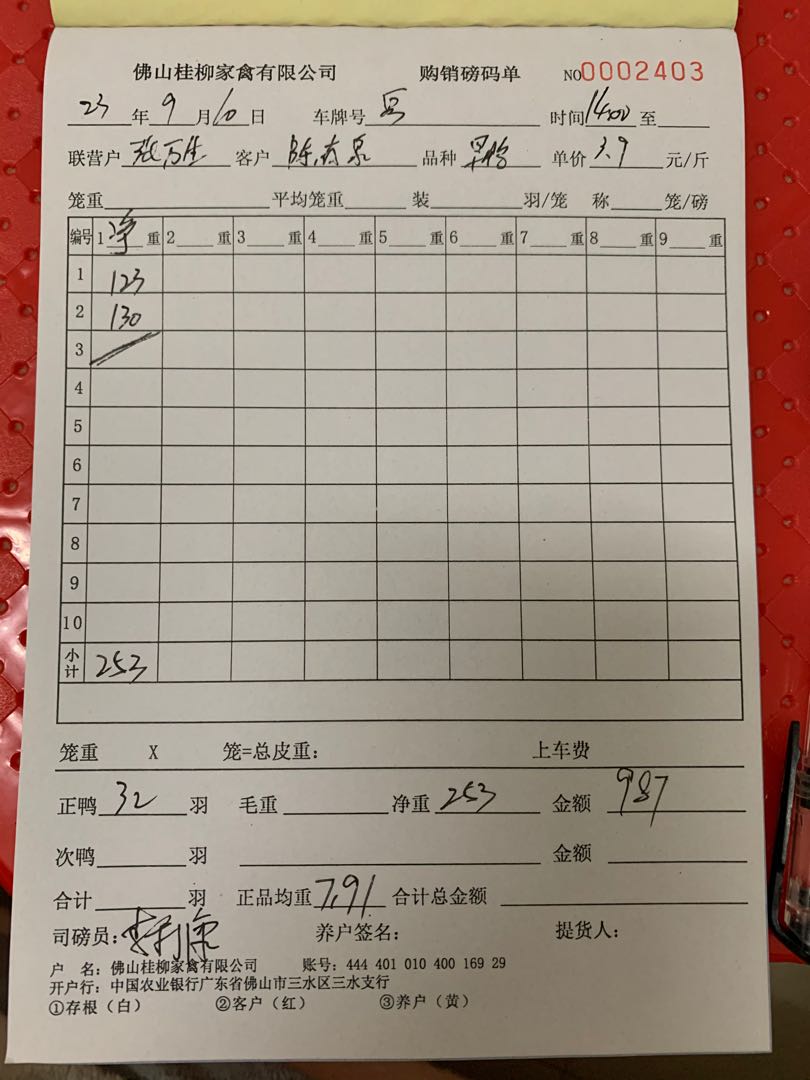 佛山桂柳家禽有限公司 购销磅码单 NO0002403
23 年 9 月 10 日 车牌号 时间 14:00 至
联营户 张万生 客户 陈有泉 品种 早鸭 单价 3.9 元/斤
笼重 平均笼重 装 羽/笼 称 笼/磅
编号 1 净 重 2 重 3 重 4 重 5 重 6 重 7 重 8 重 9 重
1 123
2 130
3
4
5
6
7
8
9
10
小计 253
笼重 X 笼=总皮重: 上车费
正鸭 32 羽 毛重 净重 253 金额 987
次鸭 羽 金额
合计 羽 正品均重 7.91 合计总金额
司磅员: 养户签名: 提货人:
户 名: 佛山桂柳家禽有限公司 账号: 444 401 010 400 169 29
开户行: 中国农业银行广东省佛山市三水区三水支行
①存根(白) ②客户(红) ③养户(黄)